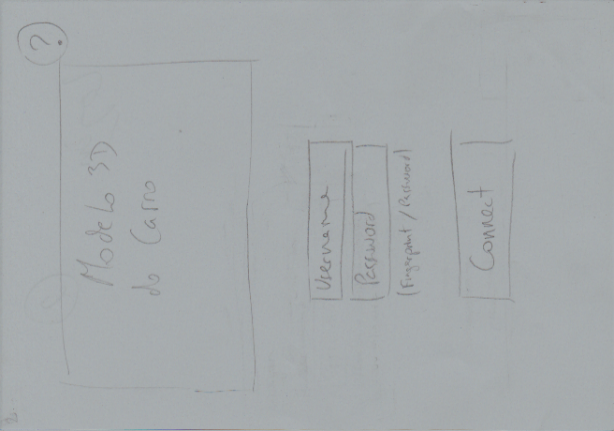 ?
Modelo 3D
do Carro
Username
Password
(Fingerprint / Password)
Connect